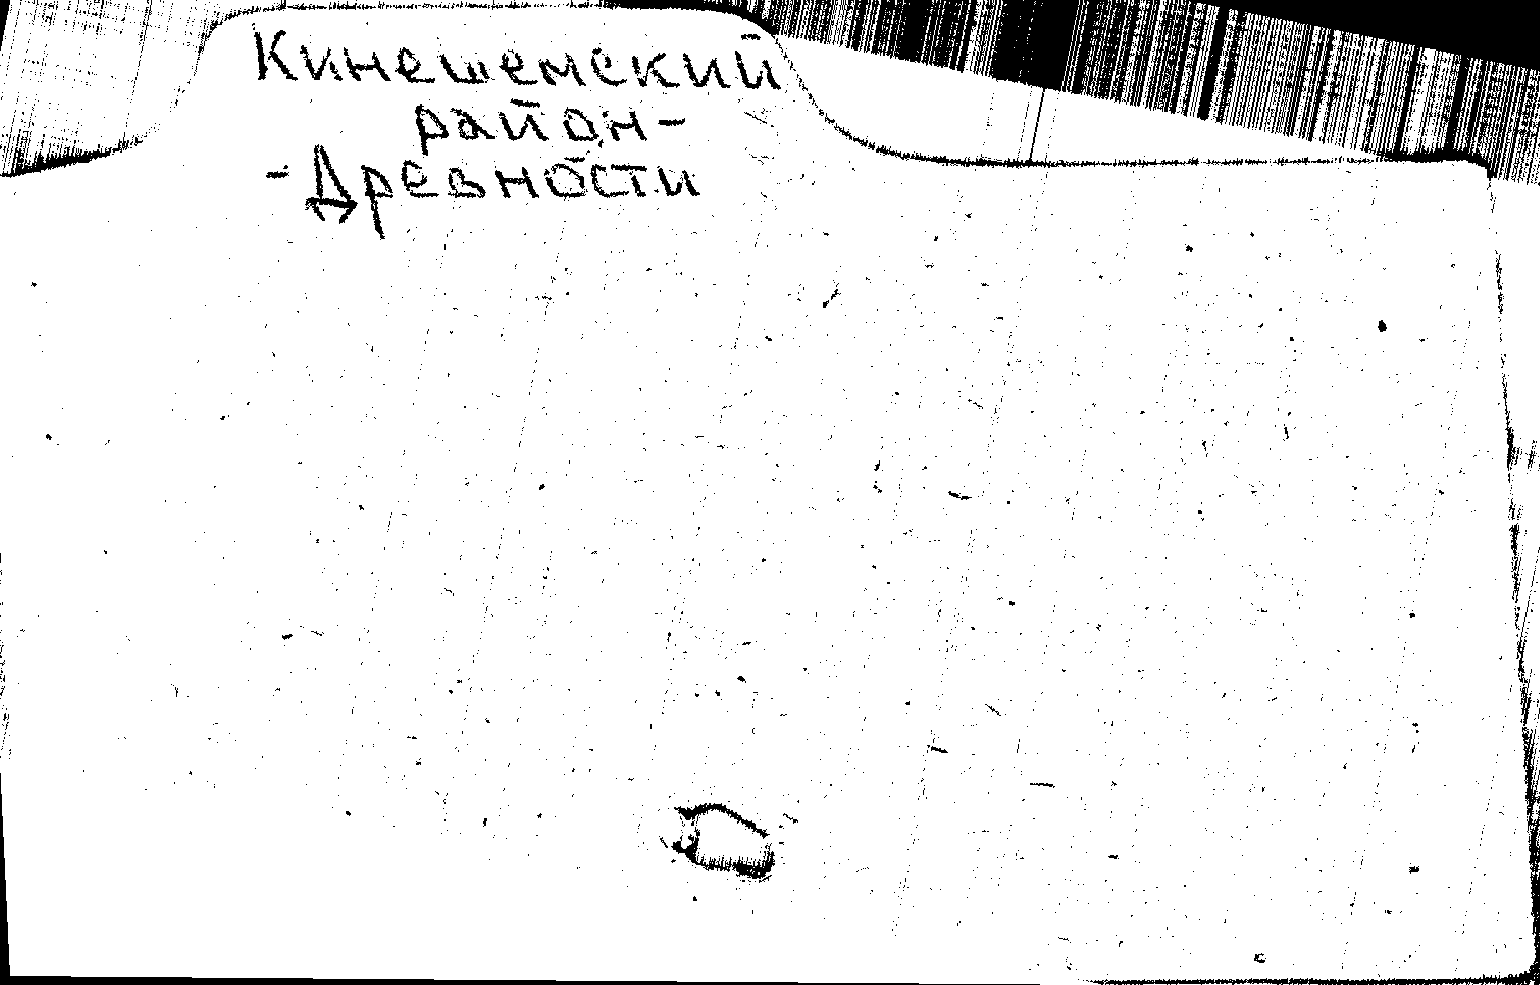 Кинешемский
район-
-Древности